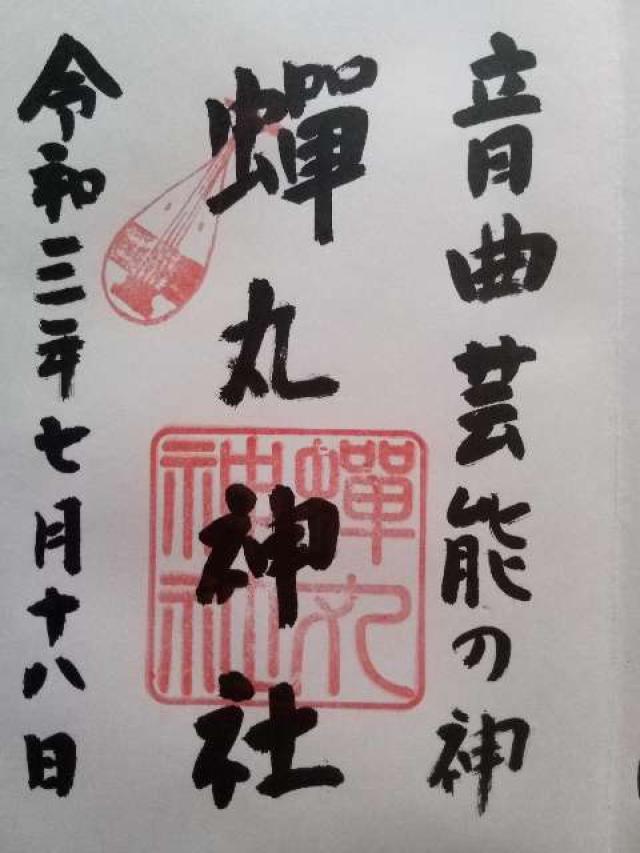 音曲芸能の神
蟬丸神社
令和三年七月十八日
蟬丸
神社